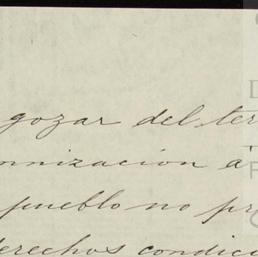 gozar del ter
mnizacion a
pueblo no pr
derechos condici